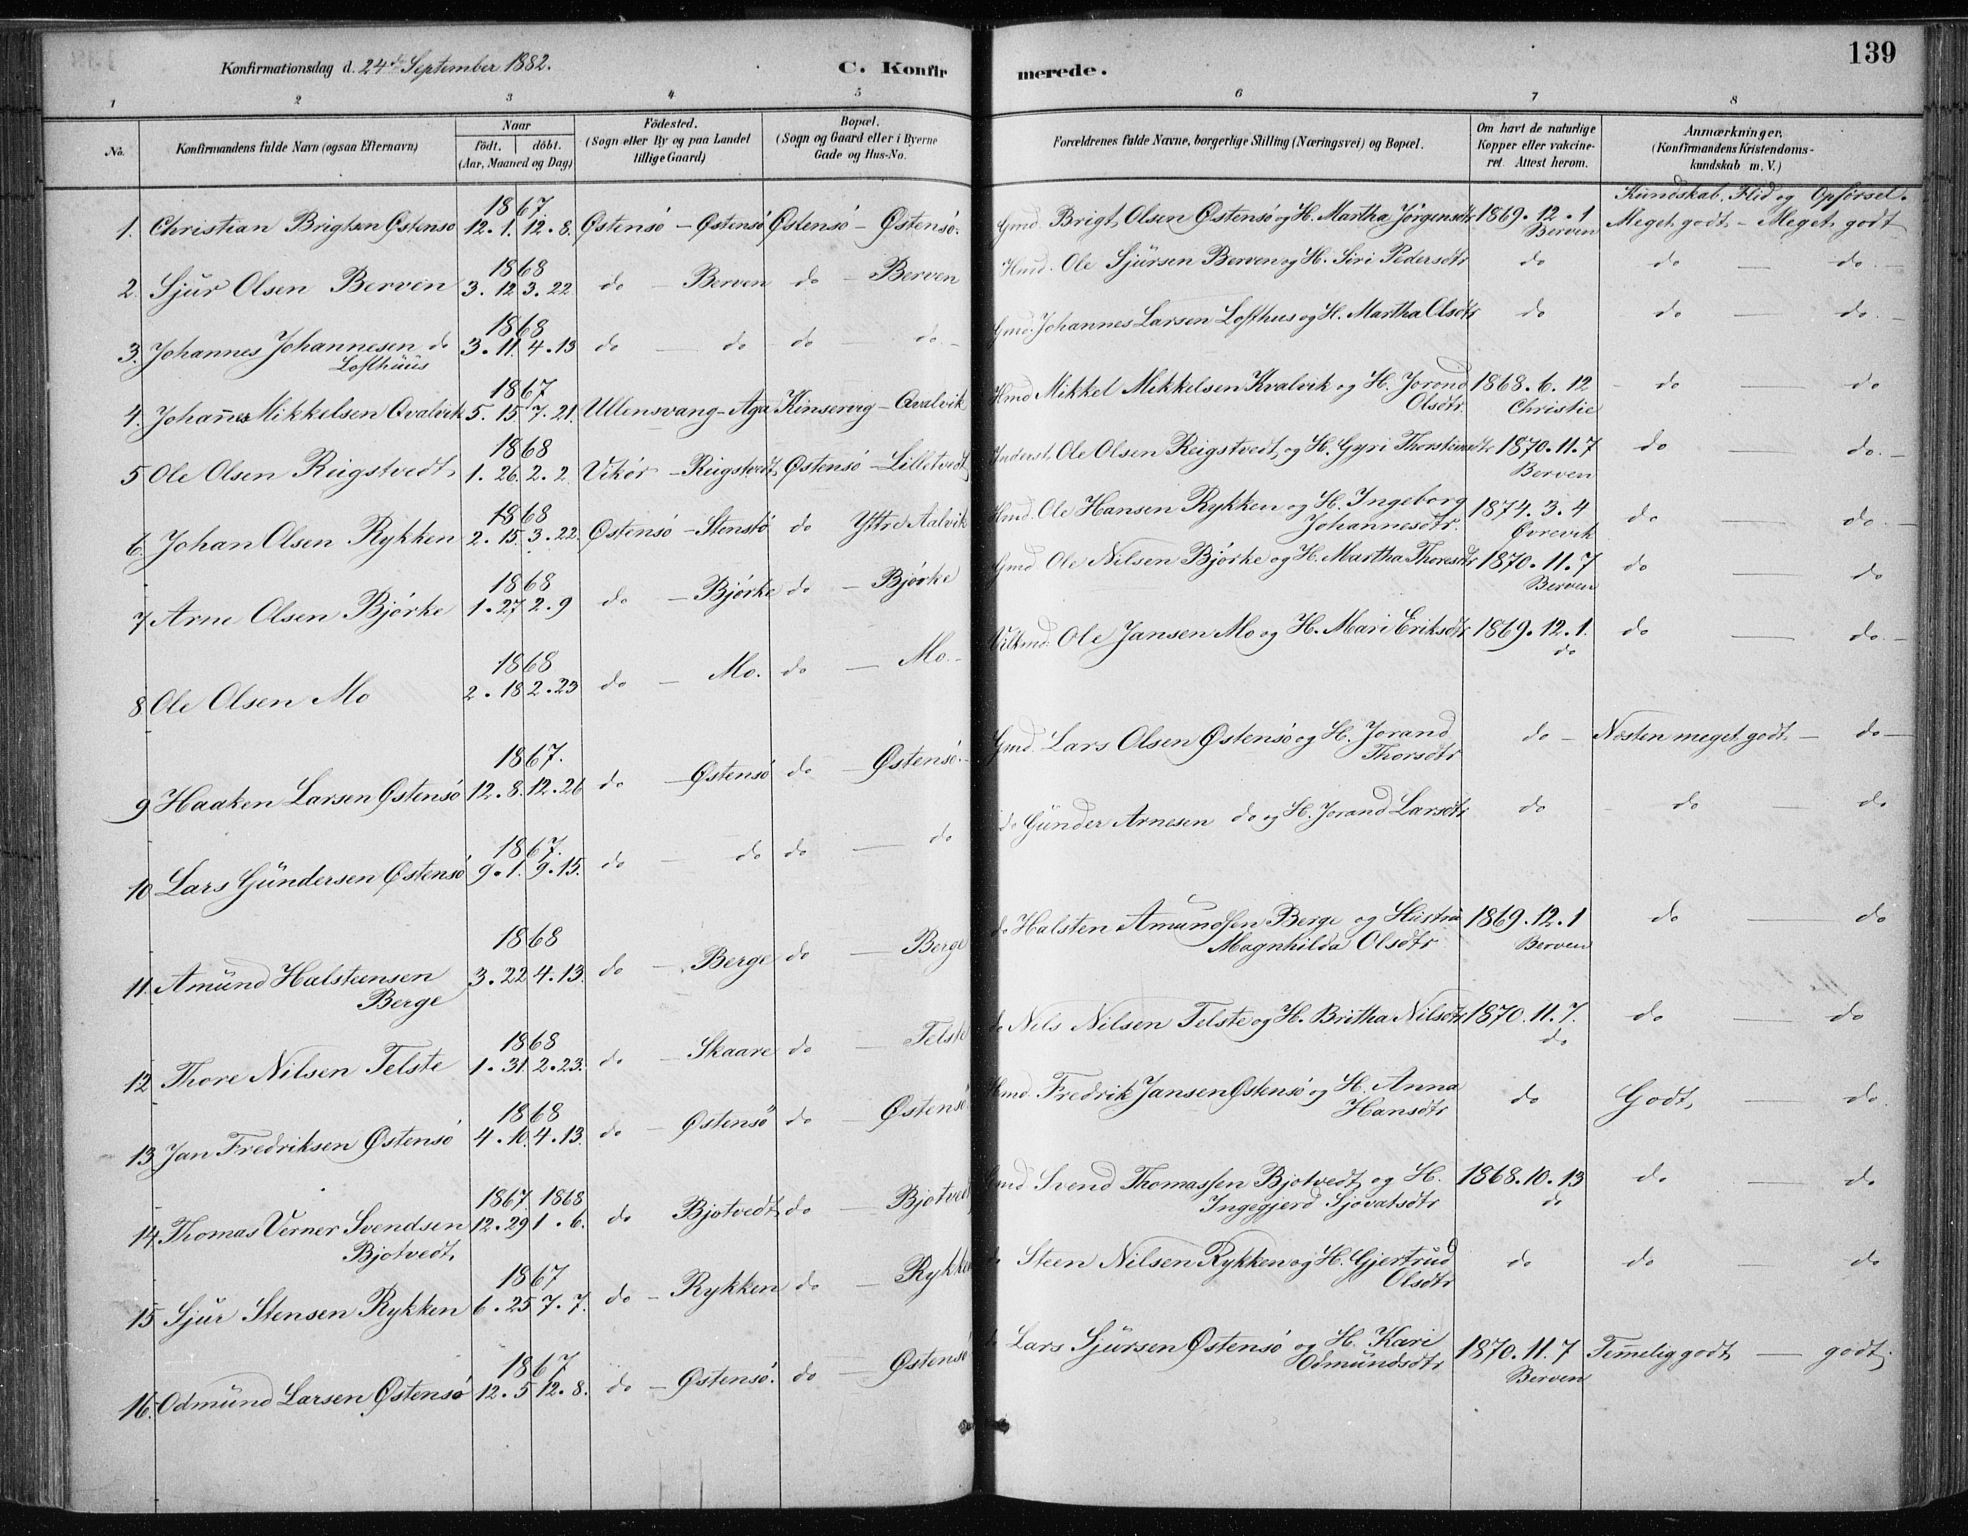 Konfirmationsdag d. 24de September 1882. C. Konfirmerede. 139
1 2 3 4 5 6 7 8
No. Konfirmandens fulde Navn (ogsaa Efternavn) Naar födt. döbt. (Aar, Maaned og Dag) Födested. (Sogn eller By og paa Landet tillige Gaard) Bopæl. (Sogn og Gaard eller i Byerne Gade og Hus-No. Forældrenes fulde Navne, borgerlige Stilling (Næringsvei) og Bopæl. Om havt de naturlige Kopper eller vakcineret. Attest herom. Anmærkninger. (Konfirmandens Kristendomskundskab m. V.)
Kundskab. Flid og Opførsel.
1867
1. Christian Brigtsen Østensø 12.1. 12.8. Østensö - Østensö Østensö - Østensö. Gmd. Brigt Olsen Østensö og H. Martha Jørgensdtr 1869.12.1 Meget godt - Meget godt
Berven
1868
2. Sjur Olsen Berven 3.12 3.22 do - Berven do - Berven Hmd. Ole Sjürsen Berven og H. Siri Pedersdtr do do — do. -
1868
3. Johannes Johannesen do 3.11. 4.13 do — do do — do. - Gmd. Johannes Larsen Lofthus og H. Martha Olsdtr do do — do. -
Lofthüüs
1867
4. Johannes Mikkelsen Qvalvik 5.15. 7.21. Ullensvang - Aga Kinservig - Qvalvik Hmd Mikkel Mikkelsen Kvalvik og H. Jorond 1868.6.12 - do — do
Olsdtr. Christie
1868
5 Ole Olsen Reigstvedt 1.26. 2.2. Vikör - Reigstvedt Østensö - Lilletvedt Inderst. Ole Olsen Reigstvedt og H. Gyri Thorsteinsdtr 1870.11.7 do — do. -
Berven
1868
6. Johan Olsen Rykken 2.15. 3.22. Østensö - Stenstö do Yttre Aalvik Hmd. Ole Hansen Rykken og H. Ingeborg 1874.3.4 do — do. -
Johannesdtr. Övrevik
1868
7 Arne Olsen Bjørke 1.27 2.9 do - Bjørke do - Bjørke Gmd. Ole Nilsen Bjørke og H. Martha Thoresdtr 1870.11.7 do — do
Berven
1868
8 Ole Olsen Mo 2.18 2.23 do - Mo. do — Mo. - Ole Jansen Mo og H. Mari Eriksdtr 1869.12.1. do — do. -
do
1867.
9 Haaken Larsen Østensö 12.8. 12.26 do - Østensö do - Østensö. - Gmd. Lars Olsen Østensö og H. Jorand do - Nesten meget godt - do -
Thorsdtr
1867.
10 Lars Gündersen Østensö 9.1. 9.15. do — do do — do do Günder Arnesen do og H. Jorand Larsdtr do - do — do
1868
11. Amünd Halsteinsen 3.22 4.13. do - Berge do — Berge do Halsten Amundsen Berge og Hüstrü 1869.12.1 do — do
Berge Magnhilda Olsdtr Berven
1868
12 Thore Nilsen Telste 1.31 2.23. do - Skaare do — Telste do Nils Nilsen Telste og H. Britha Nilsdtr 1870.11.7. do — do
do
1868
13 Jan Fredriksen Østensö 4.10. 4.13. do - Østensö do - Østensö. Hmd. Fredrik Jansen Østensö og H. Anna do Godt — do.
Hansdtr
1867. 1868
14 Thomas Verner Svendsen 12.29 1.6. do Bjotvedt do - Bjotvedt Gmd Svend Thomassen Bjotvedt og H. 1868.10.13 do — do
Bjotvedt Ingegjerd Sjovatsdtr do
1867
15 Sjur Stensen Rykken 6.25 7.7. do - Rykken do - Rykken do Steen Nilsen Rykken og H. Gjertrud do do — do
Olsdtr
1867
16. Odmünd Larsen Østensö 12.5 12.8. do - Østensö. do - Østensö do Lars Sjürsen Østensö og H. Kari 1870.11.7 Temmelig godt — godt.
Odmündsdtr Berven